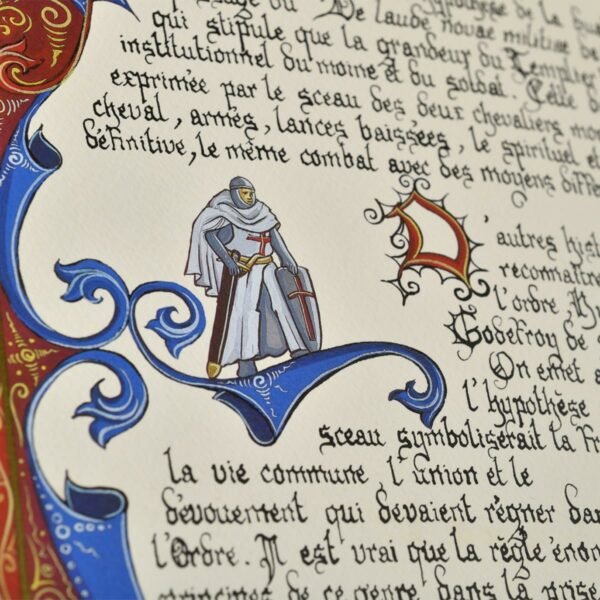 hypothèse de la
passage du "De laude novae militiae" de
qui stipule que la grandeur du Templier
institutionnel du moine et du soldat. Celle
exprimée par le sceau des deux chevaliers
cheval, armés, lances baissées, le spirituel et
définitive, le même combat avec des moyens
D'autres
reconnaître
l'ordre,
Godefroy de
On émet
l'hypothèse
sceau symboliserait la
la vie commune, l'union et le
dévouement qui devaient régner
l'Ordre. Il est vrai que la règle
principes de ce genre, dans la